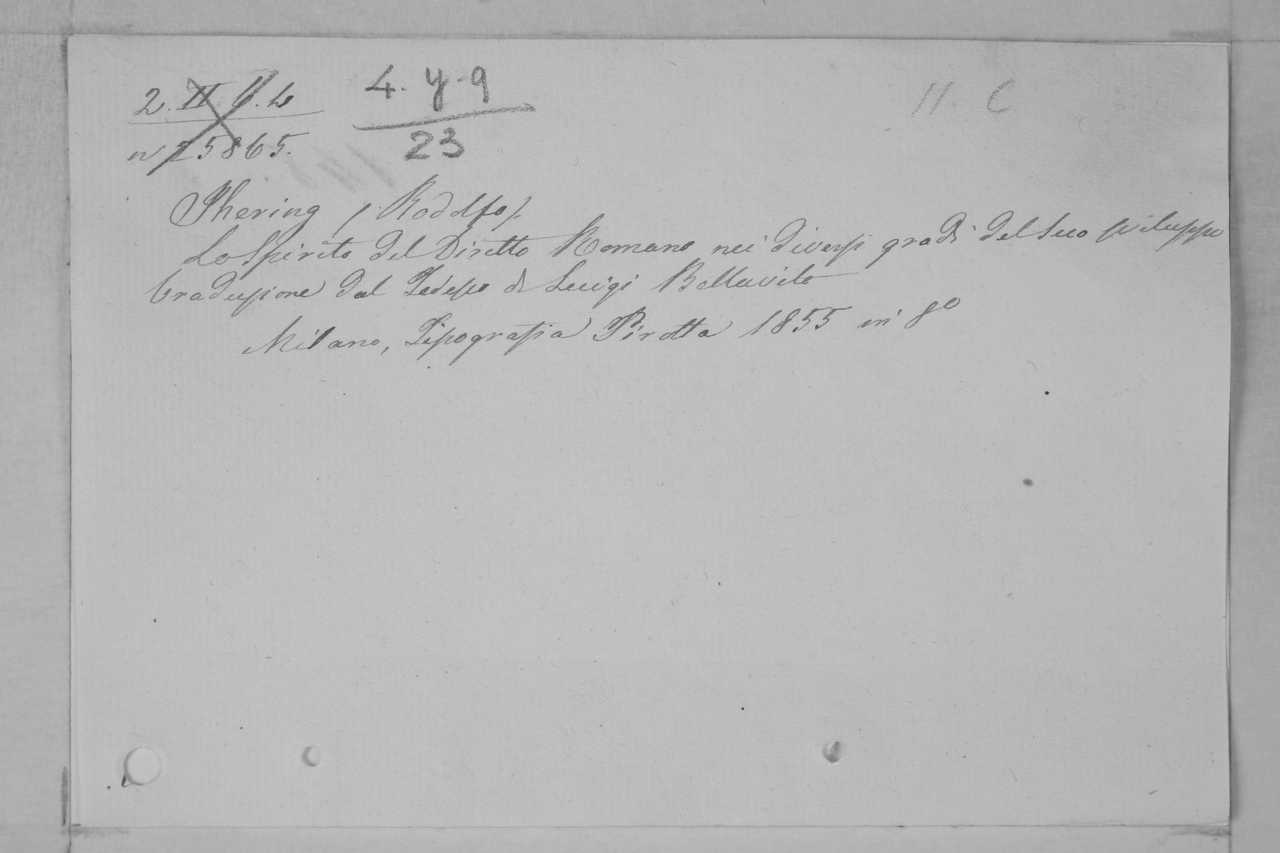 2. II. g. 4
n 25865.
4. y. 9
23
11 C
Jhering (Rodolfo).
Lo Spirito del Diretto Romano nei diversi gradi del suo sviluppo
traduzione dal Tedesco di Luigi Bellavite
Milano, Tipografia Pirotta 1855 in 8º